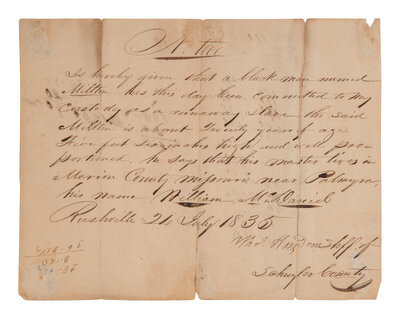 Notice
Is hereby given that a black man named
Milton has this day been Committed to my
Custody as a runaway Slave the said
Milton is about Twenty years of age
Five feet Six inches high and well pro-
portioned. he Says that his master lives in
Marion County Missouri near Palmyra,
his name William McDaniel
Rushville 24 July 1835
Shff of
Schuyler County